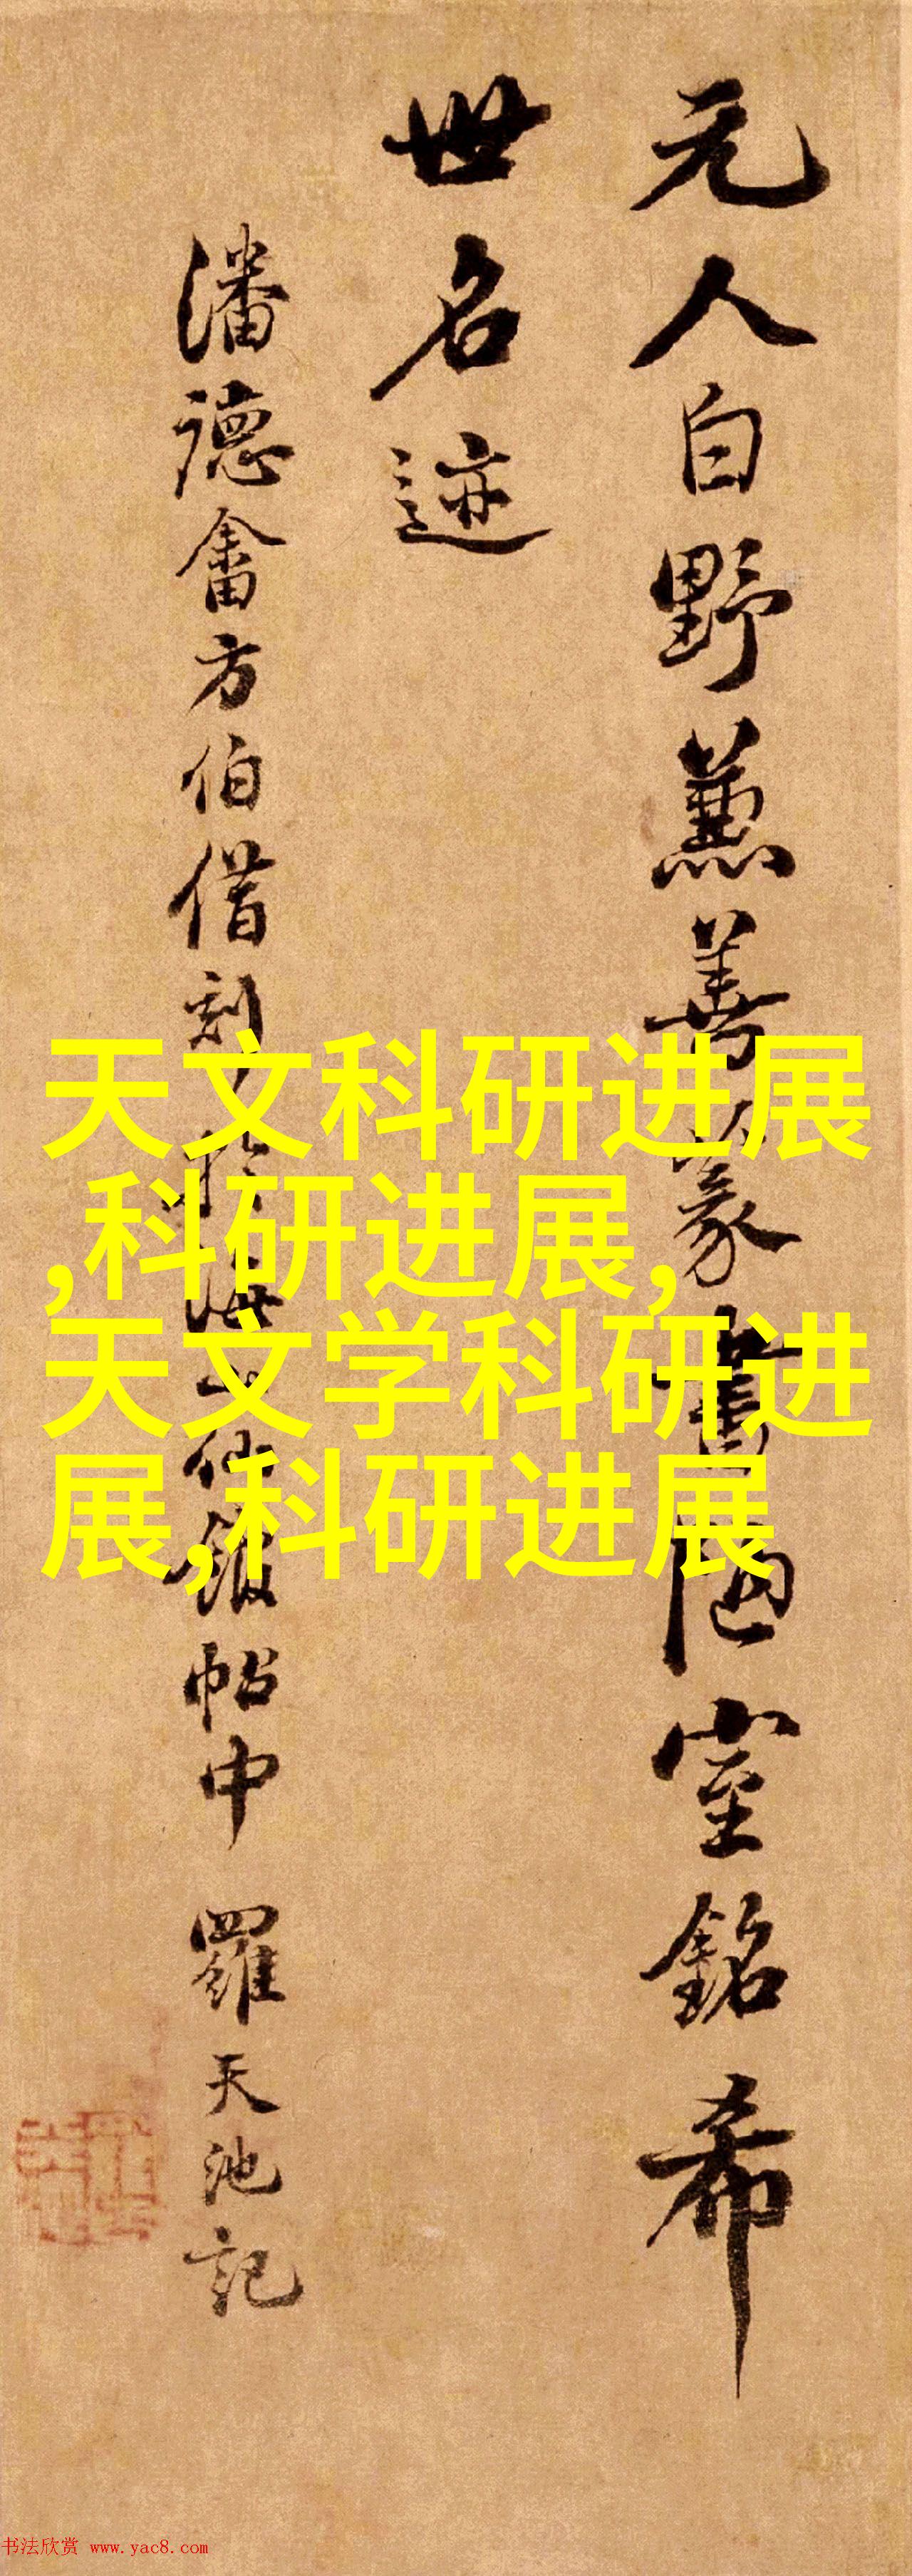 元人白野兼善篆書陋室銘希
世名迹
潘德畬方伯借刻於海山仙館帖中 羅天池記
天文科研进展
,科研进展,
天文学科研进
展,科研进展
书法欣赏 www.yac8.com